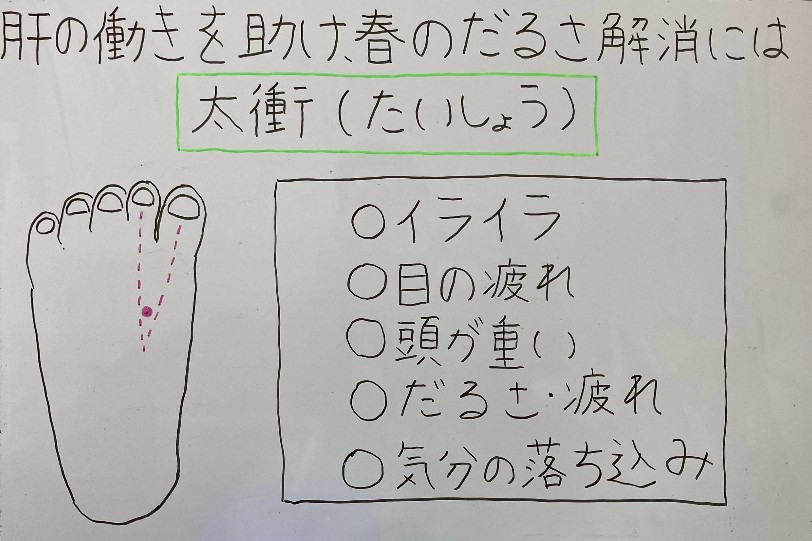 肝の働きを助け、春のだるさ解消には
太衝(たいしょう)
○イライラ
○目の疲れ
○頭が重い
○だるさ・疲れ
○気分の落ち込み